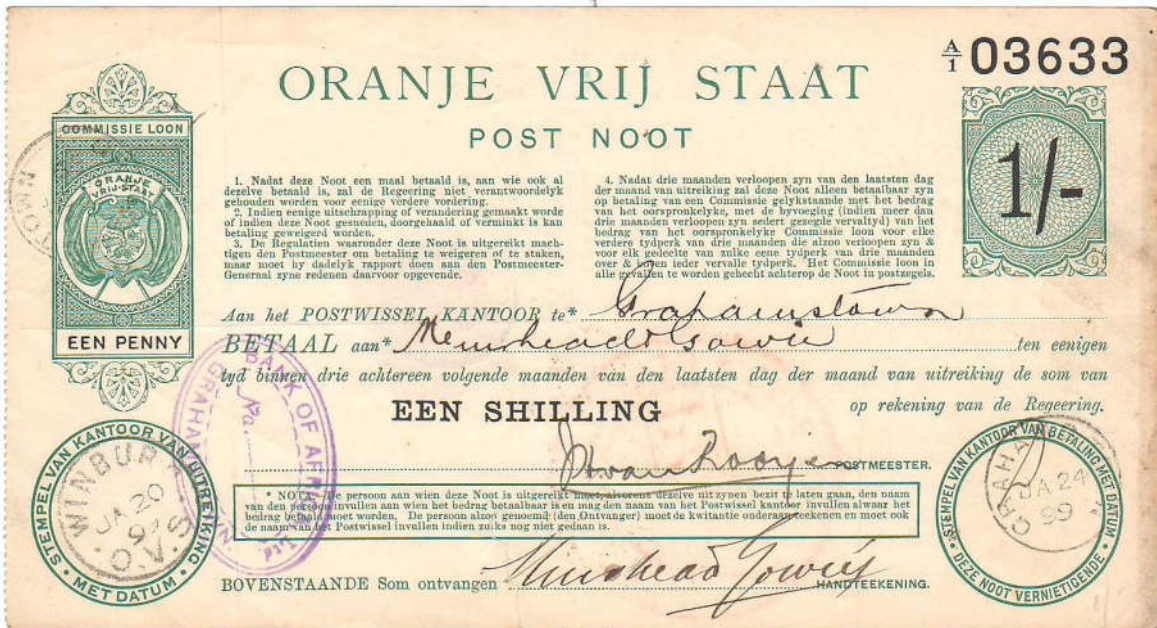 A/1 03633
ORANJE VRIJ STAAT
POST NOOT
COMMISSIE LOON
ORANJE
VRIJ-STAAT
EEN PENNY
TOWN
1/-
1. Nadat deze Noot een maal betaald is, aan wie ook al
dezelve betaald is, zal de Regeering niet verantwoordelyk
gehouden worden voor eenige verdere vordering.
2. Indien eenige uitschrapping of verandering gemaakt worde
of indien deze Noot gesneden, doorgehaald of verminkt is kan
betaling geweigerd worden.
3. De Regulatien waaronder deze Noot is uitgereikt mach-
tigen den Postmeester om betaling te weigeren of te staken,
maar moet hy dadelyk rapport doen aan den Postmeester-
Generaal zyne redenen daarvoor opgevende.
4. Nadat drie maanden verloopen zyn van den laatsten dag
der maand van uitreiking zal deze Noot alleen betaalbaar zyn
op betaling van een Commissie gelykstaande met het bedrag
van het oorspronkelyke, met de byvoeging (indien meer dan
drie maanden verloopen zyn sedert gezegde vervaltyd) van het
bedrag van het oorspronkelyke Commissie loon voor elke
verdere tydperk van drie maanden die alzoo verloopen zyn &
voor elk gedeelte van zulke eene tydperk van drie maanden
over & boven ieder vervalle tydperk. Het Commissie loon in
alle gevallen te worden gehecht achterop de Noot in postzegels.
Aan het POSTWISSEL KANTOOR te* Grahamstown
BETAAL aan* ten eenigen
tyd binnen drie achtereen volgende maanden van den laatsten dag der maand van uitreiking de som van
EEN SHILLING op rekening van de Regeering.
van Rooyen POSTMEESTER.
BANK OF AFRICA Ltd
GRAHAMSTOWN
No.
* NOTA. De persoon aan wien deze Noot is uitgereikt moet, alvorens dezelve uit zynen bezit te laten gaan, den naam
van den persoon invullen aan wien het bedrag betaalbaar is en mag den naam van het Postwissel kantoor invullen alwaar het
bedrag betaald moet worden. De persoon alzoo genoemd (den Ontvanger) moet de kwitantie onderaan teekenen en moet ook
de naam van het Postwissel invullen indien zulks nog niet gedaan is.
BOVENSTAANDE Som ontvangen Muirhead Gowie HANDTEEKENING.
STEMPEL VAN KANTOOR VAN UITREIKING
MET DATUM
WINBURG
JA 20
99
O.V.S
STEMPEL VAN KANTOOR VAN BETALING MET DATUM
DEZE NOOT VERNIETIGENDE
GRAHA N
JA 24
99